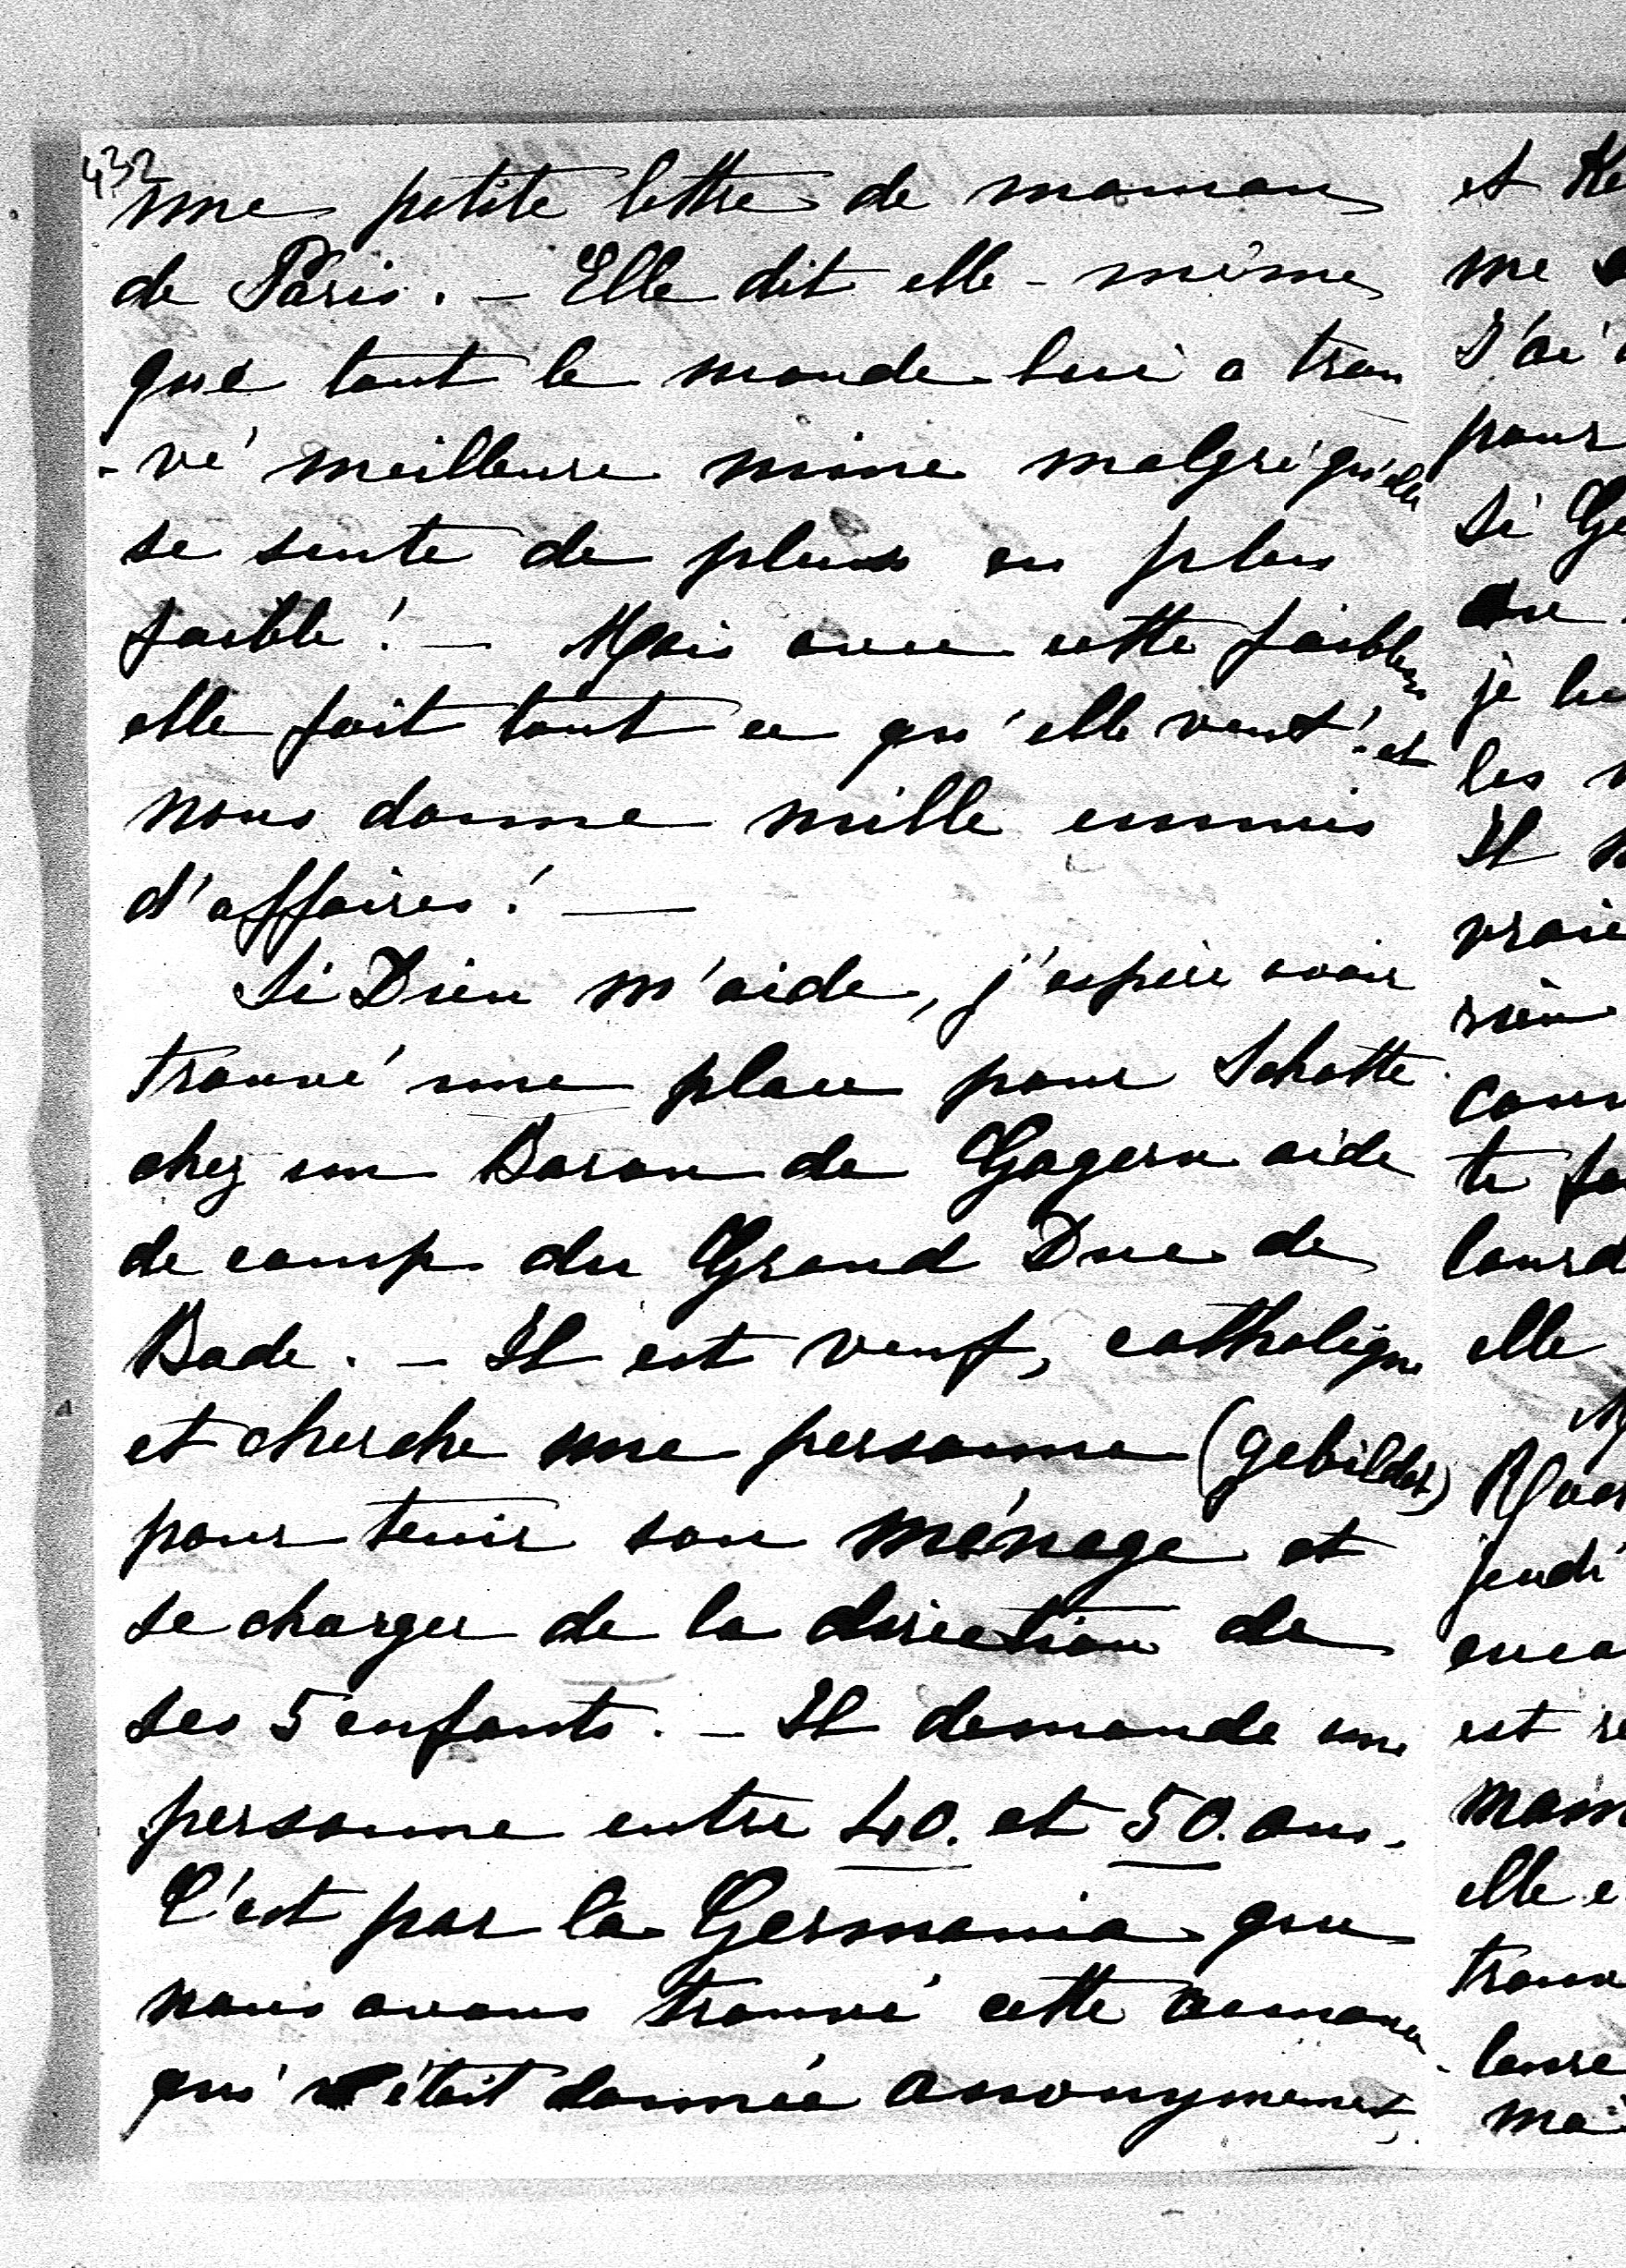 432
une petite lettre de maman
de Paris. – Elle dit elle-même
que tout le monde lui a trou
-vé meilleure mine malgré qu'elle
se sente de plus en plus
faible! – Mais avec cette faiblesse
elle fait tout ce qu'elle veut! et
nous donne mille ennuis
d'affaires! —
Si Dieu m'aide, j'espère avoir
trouvé une place pour Schotte
chez un Baron de Gagern aide
de camp du Grand Duc de
Bade. – Il est veuf, catholique
et cherche une personne (gebildet)
pour tenir son ménage et
se charger de la direction de
ses 5 enfants. – Il demande une
personne entre 40. et 50. ans.
C'est par la Germania que
nous avons trouvé cette annonce
qui était donnée anonymement,
et
me
J'ai
pour
si
je
les
Il
rien
te
elle
jeudi
est
elle